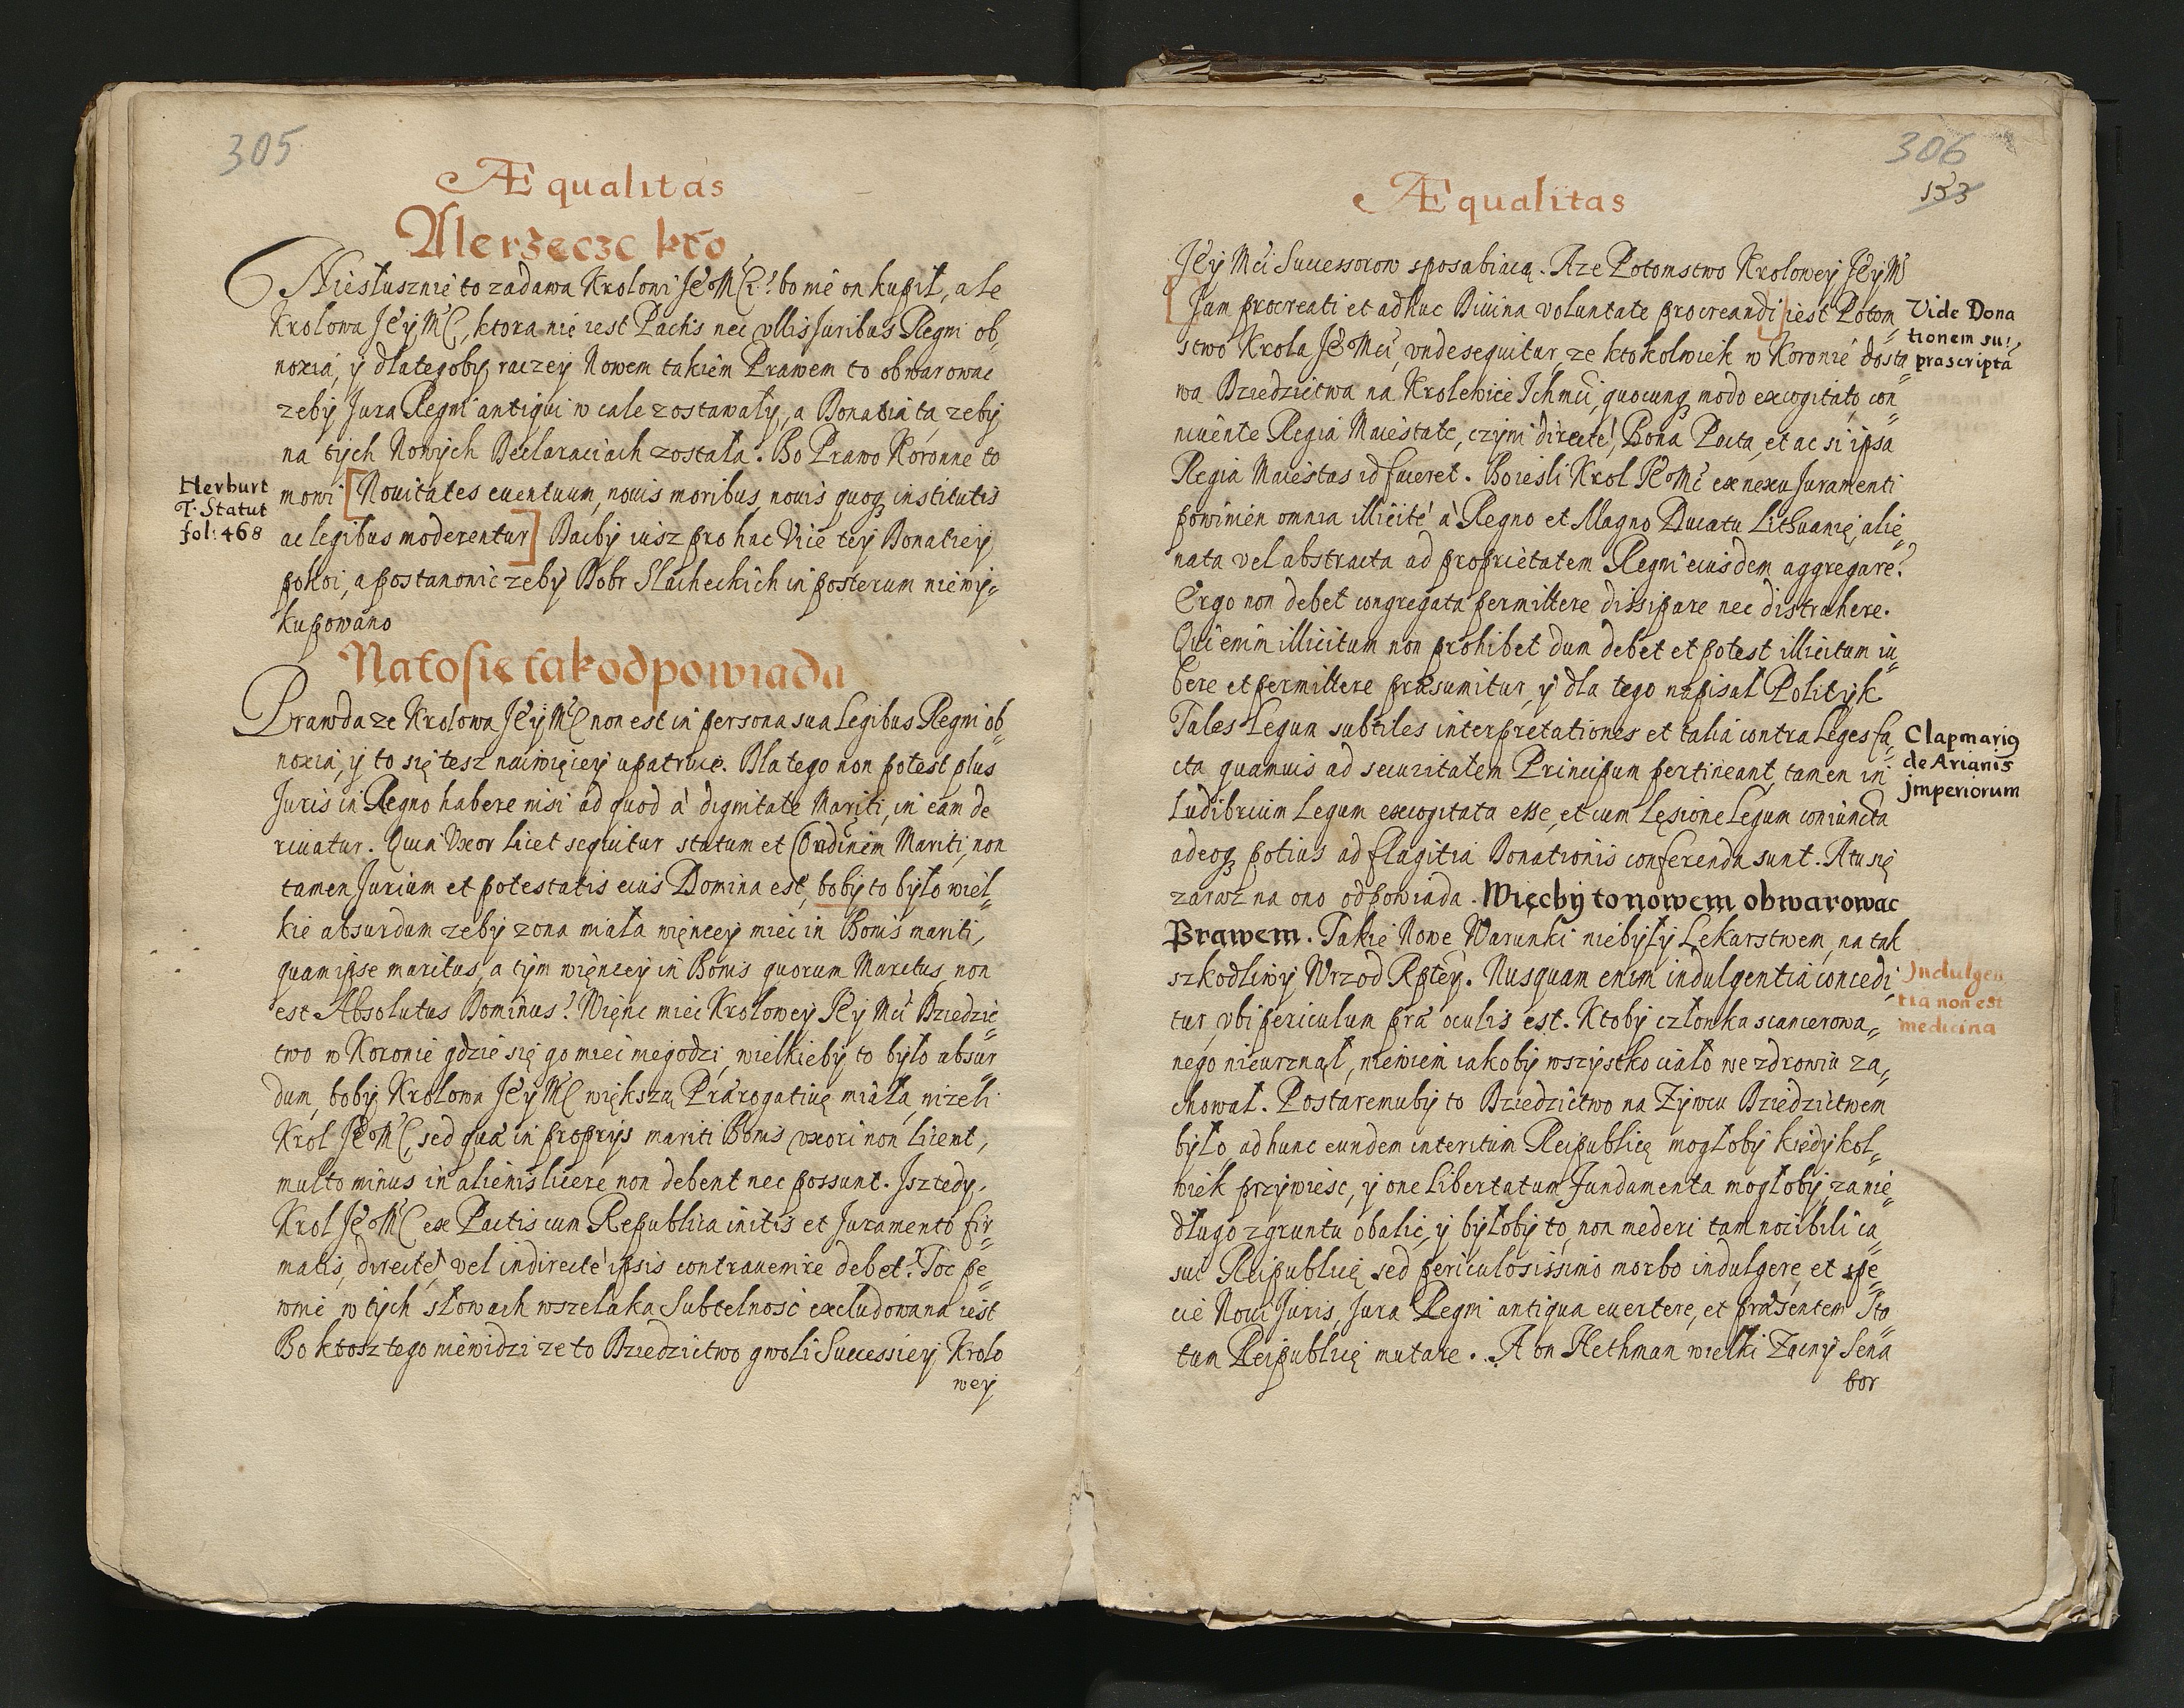 305
Æqualitas
Ale rzecze kto
Niesłusznie to zadawa Krolowi Je° Mci? bo nie on kupił, ale
Krolowa Jey Mć, ktora nie iest Pactis nec vllis Juribus Regni ob,
noxia, y dlategoby raczey Nowem takiem Prawem to obwarowac
zeby Jura Regni antiqui w cale zostawały, a Donatia ta zeby
na tych Nowych Declaraciach została. Bo Prawo Koronne to
Herburt
T. Statut
fol: 468
mowi [Nouitates euentuum, nouis moribus, nouis quoq institutis
ac legibus moderentur] Dacby iusz pro hac Vice tey Donatiey
pokoi, a postanowic zeby Dobr Slacheckich in posterum niewy-
kupowano
Na to się tak odpowiada
Prawda ze Krolowa Jey Mć non est in persona sua Legibus Regni ob,
noxia, y to się tesz naiwięcey upatruie. Dla tego non potest plus
Juris in Regno habere nisi ad quod à dignitate Mariti, in eam de
riuatur. Quia Vxor licet sequitur statum et Ordinem Mariti, non
tamen Jurium et potestatis eius Domina est, bo by to było wiel-
kie absurdum zeby zona miała więncey miec in Bonis mariti,
quam ipse maritus, a tym więncey in Bonis quorum Maritus non
est Absolutus Dominus? Więnc miec Krolowey Jey Mci Dziedzic-
two w Koronie gdzie się go miec niegodzi, wielkieby to było absur
dum, boby Krolowa Jey Mć większą Prærogatiuę miała, nizeli
Krol Je° Mć, sed quæ in proprijs mariti Bonis vxori non licent,
multo minus in alienis licere non debent nec possunt. Jsz tedy
Krol Je° Mć ex Pactis cum Republica initis et Juramento fir-
matis, directé vel indirecté ipsis contrauenire debet? Toc pe-
wnie w tych słowach wszelaka Subtelnosć excludowana iest
Bo ktosz tego niewidzi ze to Dziedzictwo gwoli Successiey Krolo
wey
306
153
Æqualitas
Jey Mci Successorow sposabiaią. A ze Potomstwo Krolowey Jey M
[Jam procreati et adhuc Diuina voluntate procreandi] iest Potom
Vide Dona
tionem su:
prascripta
stwo Krola Je° Mci, vnde sequitur, ze ktokolwiek w Koronie dosta
wa Dziedzictwa na Krolewice Ichmci, quocunq modo excogitato, con
niuente Regia Maiestate, czyni directé, Bona Pacta, et ac si ipsa
Regia Maiestas id faceret. Bo iesli Krol Je° Mć ex nexu Juramenti
powinien omnia illicité à Regno et Magno Ducatu Lithuanię, alie,
nata vel abstracta ad proprietatem Regni eiusdem aggregare?
Ergo non debet congregata permittere dissipare nec distrahere.
Qui enim illicitum non prohibet dum debet et potest illicitum iu
bere et permittere præsumitur, y dla tego napisał Polityk
Tales Legum subtiles interpretationes et talia contra Leges fa,
Clapmariq
de Arianis
jmperiorum
cta quamuis ad securitatem Principum pertineant, tamen in
Ludibrium Legum excogitata esse, et cum Lęsione Legum coniuncta
adeoq potius ad flagitia Donationis conferenda sunt. A tu się
zaraz na ono odpowiada. Więcby to nowem obwarowac
Prawem. Takie Nowe Warunki niebyły Lekarstwem, na tak
szkodliwy Wrzod Rptey. Nusquam enim indulgentia concedi
Indulgen
tia non est
medicina
tur, vbi periculum præ oculis est. Ktoby członka scancerowa-
nego nieurznął, niewiem iakoby wszystko ciało we zdrowiu za,
chował. Postaremuby to Dziedzictwo na Zywcu Dziedzictwem
było, ad hunc eundem interitum Reipublicę mogłoby kiedykol,
wiek przywiesc, y one Libertatum Fundamenta mogłoby, zanie-
długo z gruntu obalić, y byłoby to, non mederi tam nocibili ca
sui Reipublicę sed periculosissimo morbo indulgere, et spe-
cie Noui Juris, Jura Regni antiqua euertere, et præsentem Sta
tum Reipublicę mutare. A on Hethman wielki Zacny Sena
tor